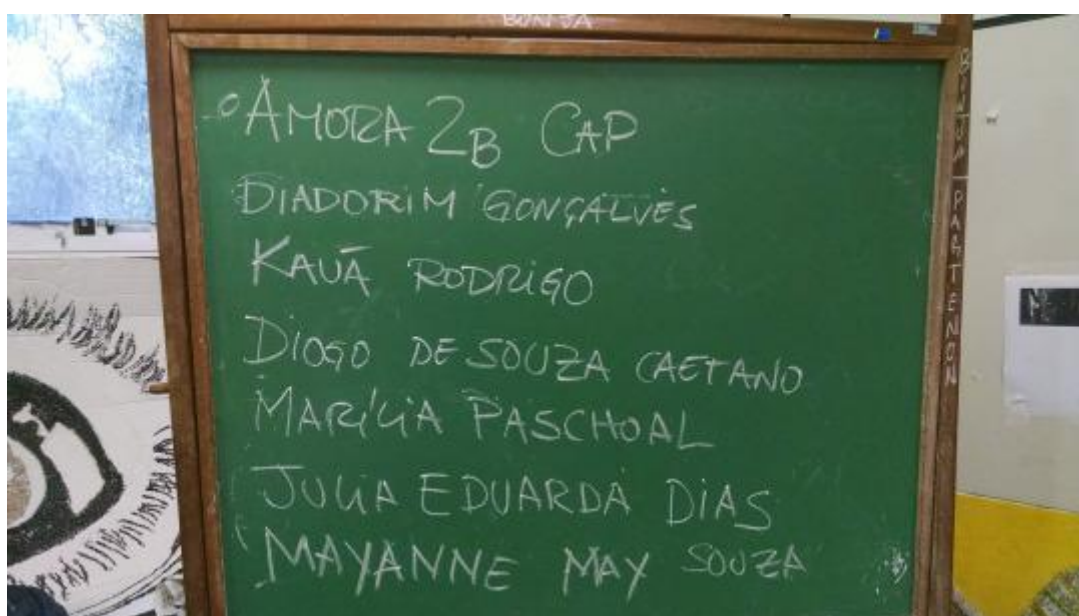 BONJA
AMORA 2B CAP
DIADORIM GONÇALVES
KAUÃ RODRIGO
DIOGO DE SOUZA CAETANO
MARÍLIA PASCHOAL
JULIA EDUARDA DIAS
MAYANNE MAY SOUZA
BONJA PARTENON